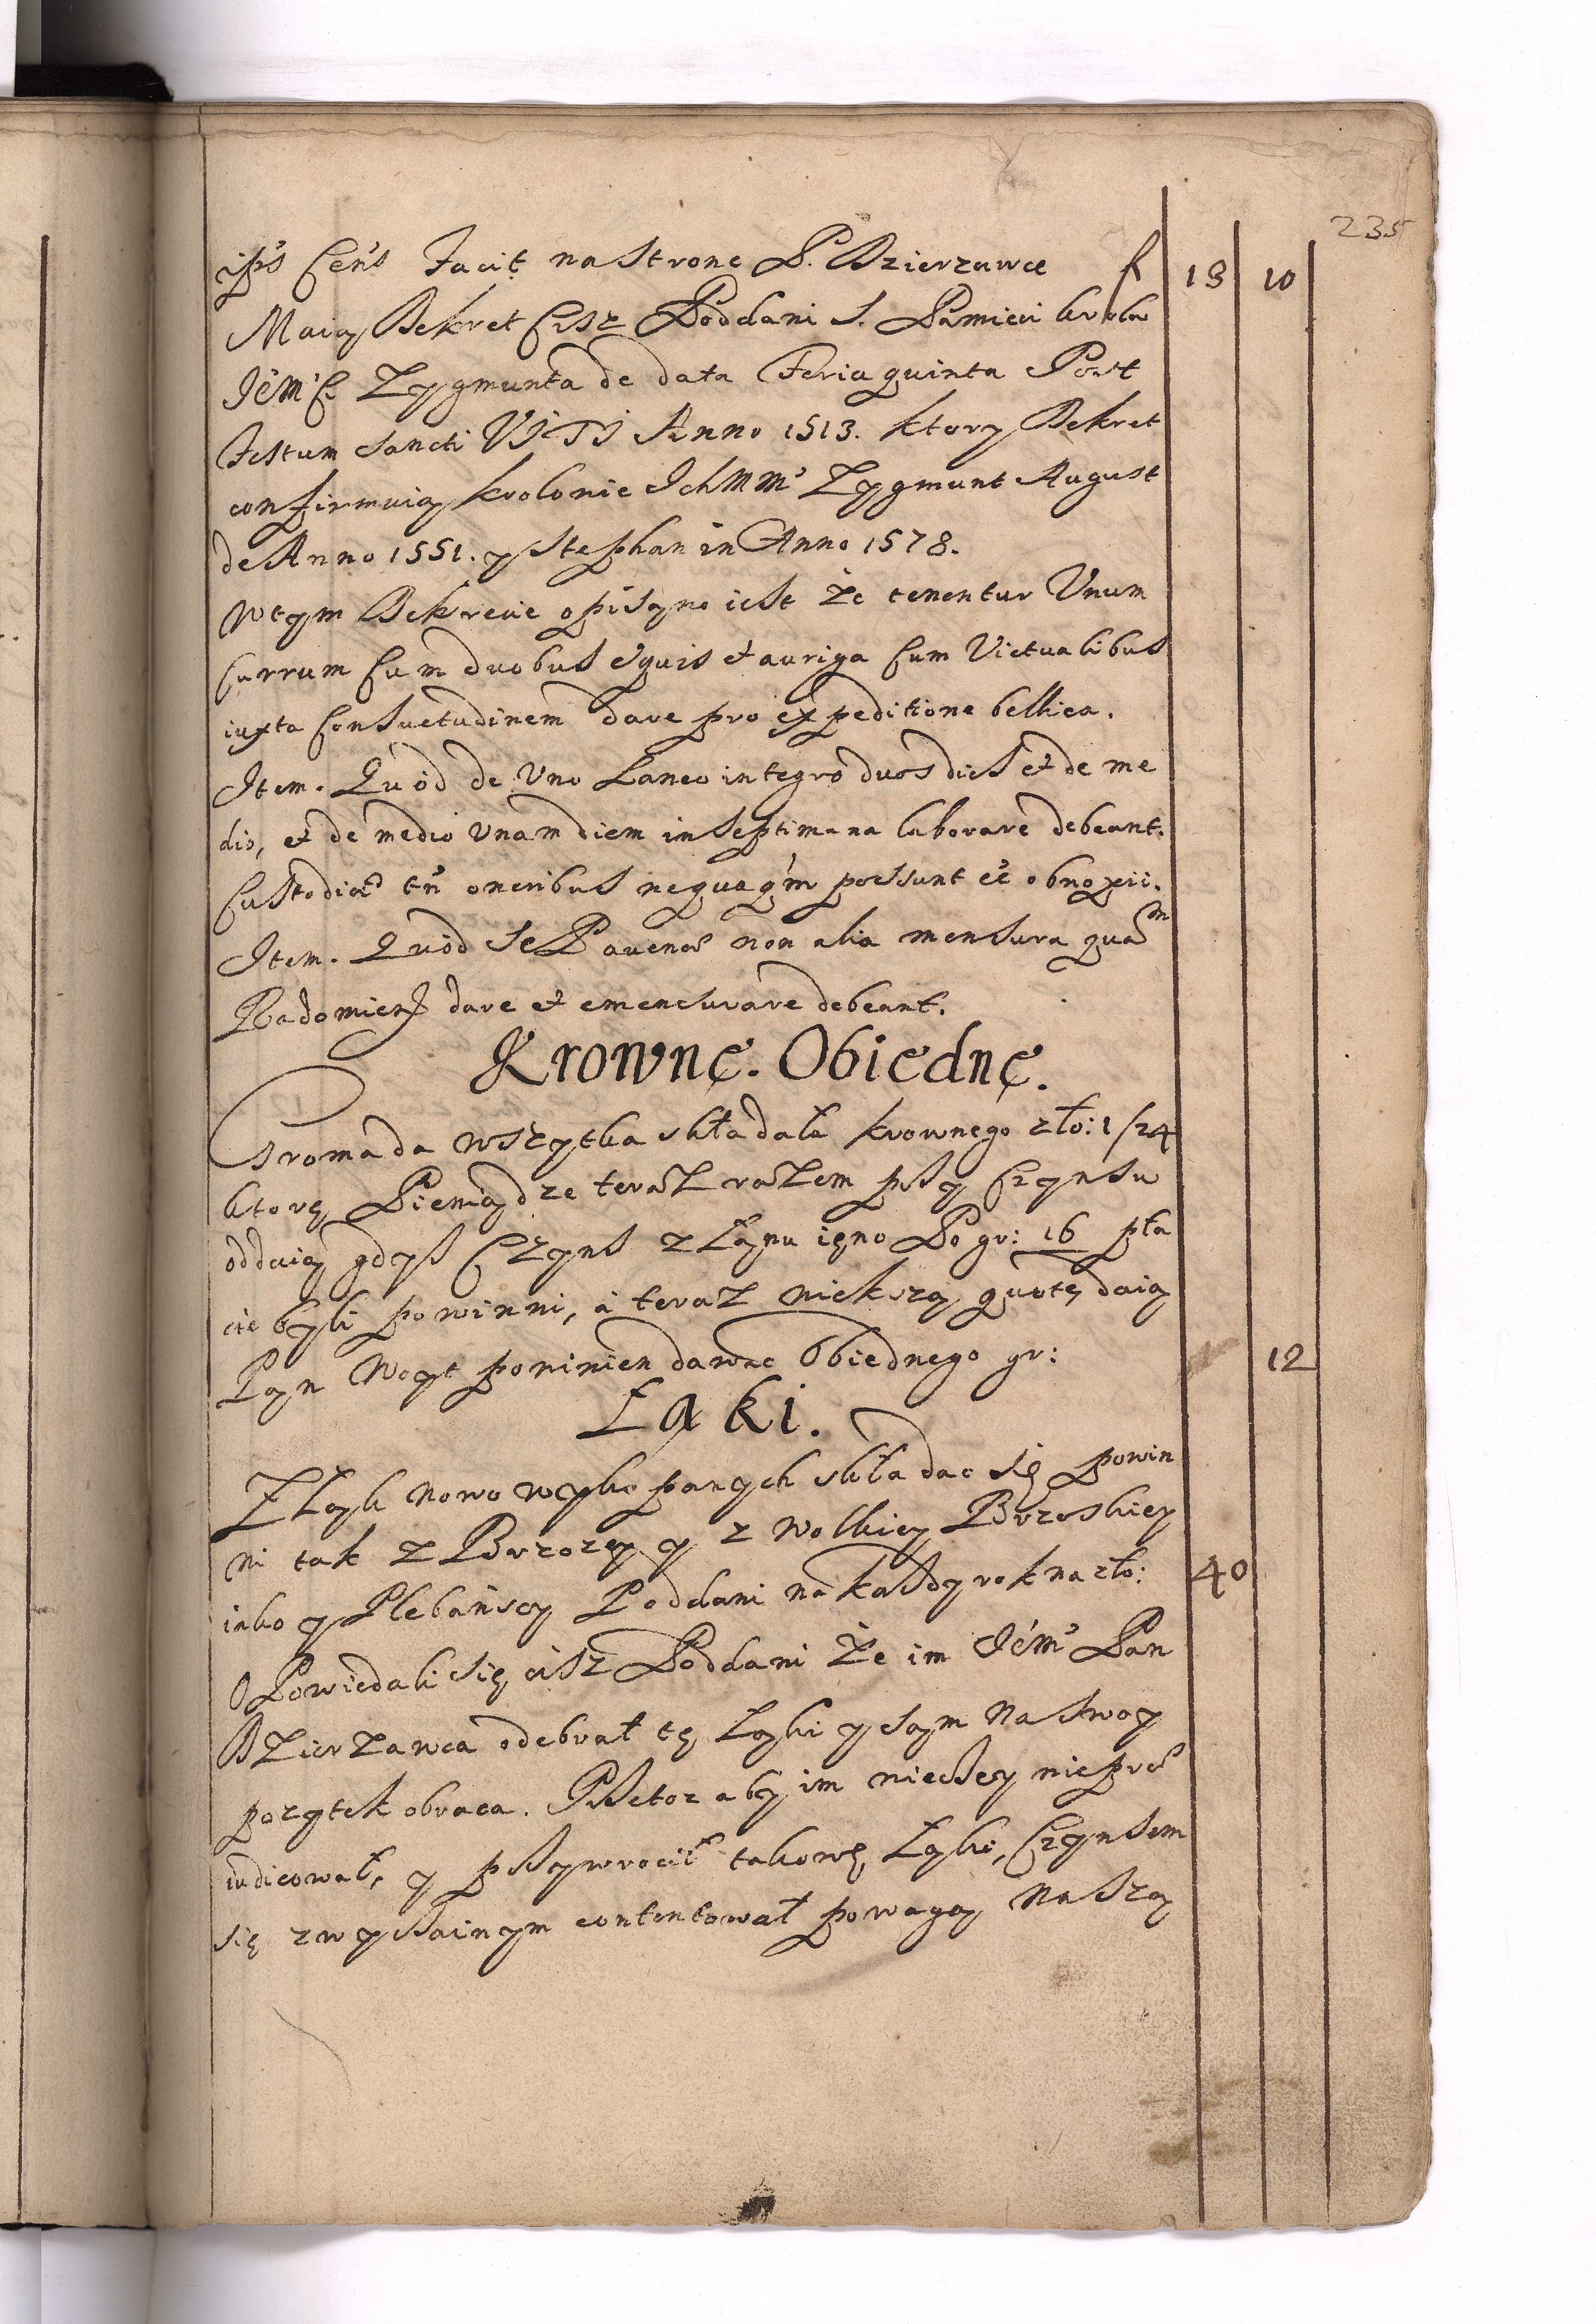 235
ip's Cen's Facit na strone P. Dzierzawce f 13 10
Maią Dekret Cisz Poddani S. Pamieci krola
JémC Zygmunta de data Feria quinta Post
Festum Sancti VITI Anno 1513. ktory Dekret
confirmuią krolowie Ichmm' Zygmunt August
de Anno 1551. y Stephan in Anno 1578.
W tym Dekrecie opisąno iest że tenentur Unum
Currum Cum duobus equis et auriga Cum Victualibus
iuxta Consuetudinem dare pro expeditione bellica.
Item. Quod de Uno Laneo integro duos dies et de me
dio, et de medio Unam diem in septimana laborare debeant.
Custodiae tn' oneribus nequaq'm possunt ee obnoxii.
Item. Quod Sep avenae non alia mensura quam
Radomien dare et emensurare debeant.
Krownę. Obiednę.
Gromada wszytka składała krownego zło: 1/24
ktorę Pieniądze teraz razem psy Czynsu
oddaią gdysz Czyns z Łąnu ięno Po gr: 16 pła
cic byli powinni, a teraz wiekszą quotę daią
Pąn Woyt powinien dawac Obiednego gr: 12
Łąki.
Z Łąk nowo wykopanych składac się powin
ni tak z Brzozy y z Wolkiey Brzoskiey
iako y Plebańscy Poddani na kasdy rok na zło: 40
OPowiedali się cisz Poddani że im Jém' Pan
Dzierzawca odebrał tę Łąki y sąm na swoy
pozytek obraca. Psetoz aby im wiecsey nie prae
iudicował, y psywrocił takowę Łąki, Czynsem
się zwysainym contentował powagą naszą